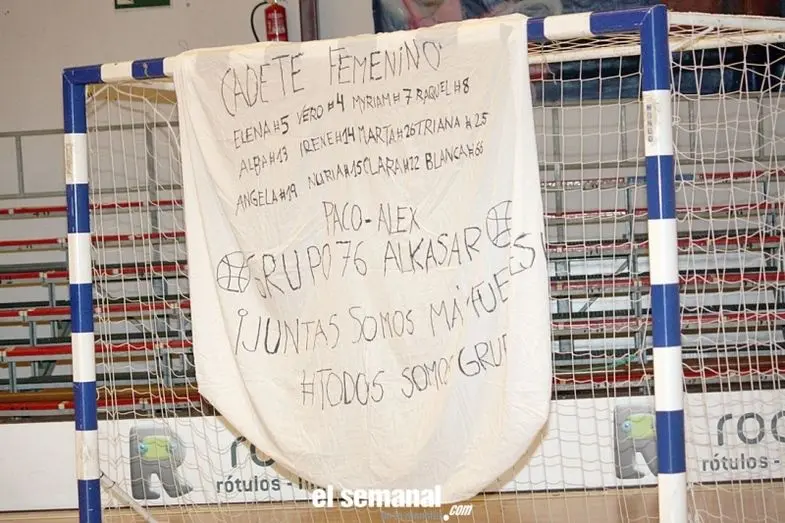 CADETE FEMENINO
ELENA #5 VERO #4 MYRIAM #7 RAQUEL #8
ALBA #13 IRENE #14 MARTA #26 TRIANA #25
ANGELA #19 NURIA #15 CLARA #22 BLANCA #66
PACO - ALEX
GRUPO 76 ALKASAR
¡JUNTAS SOMOS MÁS FUERTES!
#TODOS SOMOS GRUP
rótulos -
rótulos -
el semanal
.com